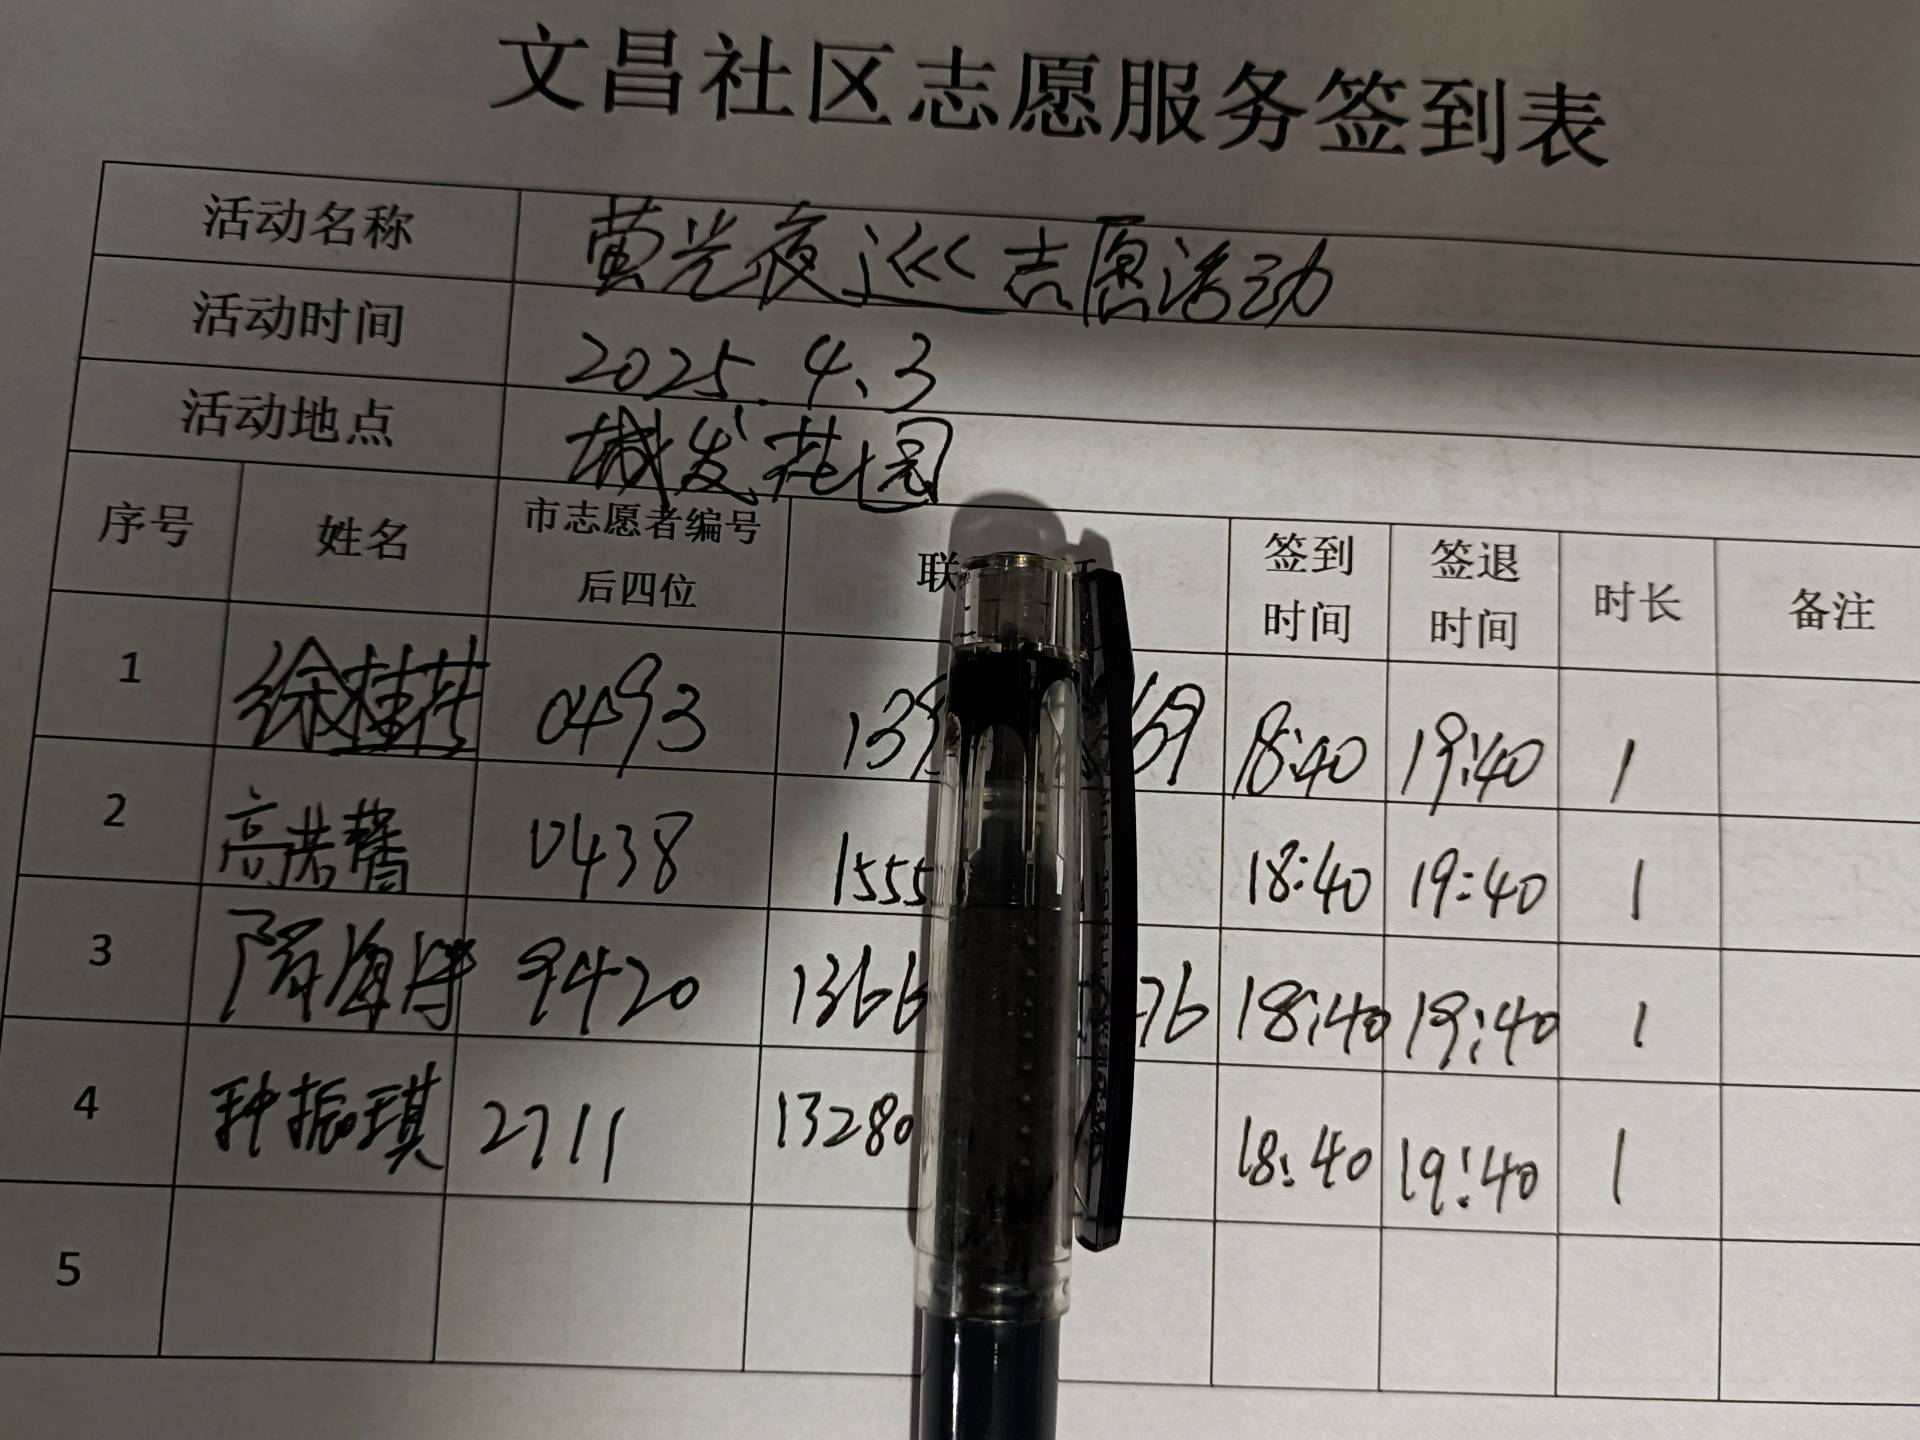 文昌社区志愿服务签到表
活动名称 萤光夜巡志愿活动
活动时间 2025.4.3
活动地点 城发花园
序号 姓名 市志愿者编号后四位 联 签到时间 签退时间 时长 备注
1 徐桂花 0493 139 69 18:40 19:40 1
2 高若馨 0438 1555 18:40 19:40 1
3 隋海洋 9420 1366 76 18:40 19:40 1
4 种振琪 2711 13280 18:40 19:40 1
5